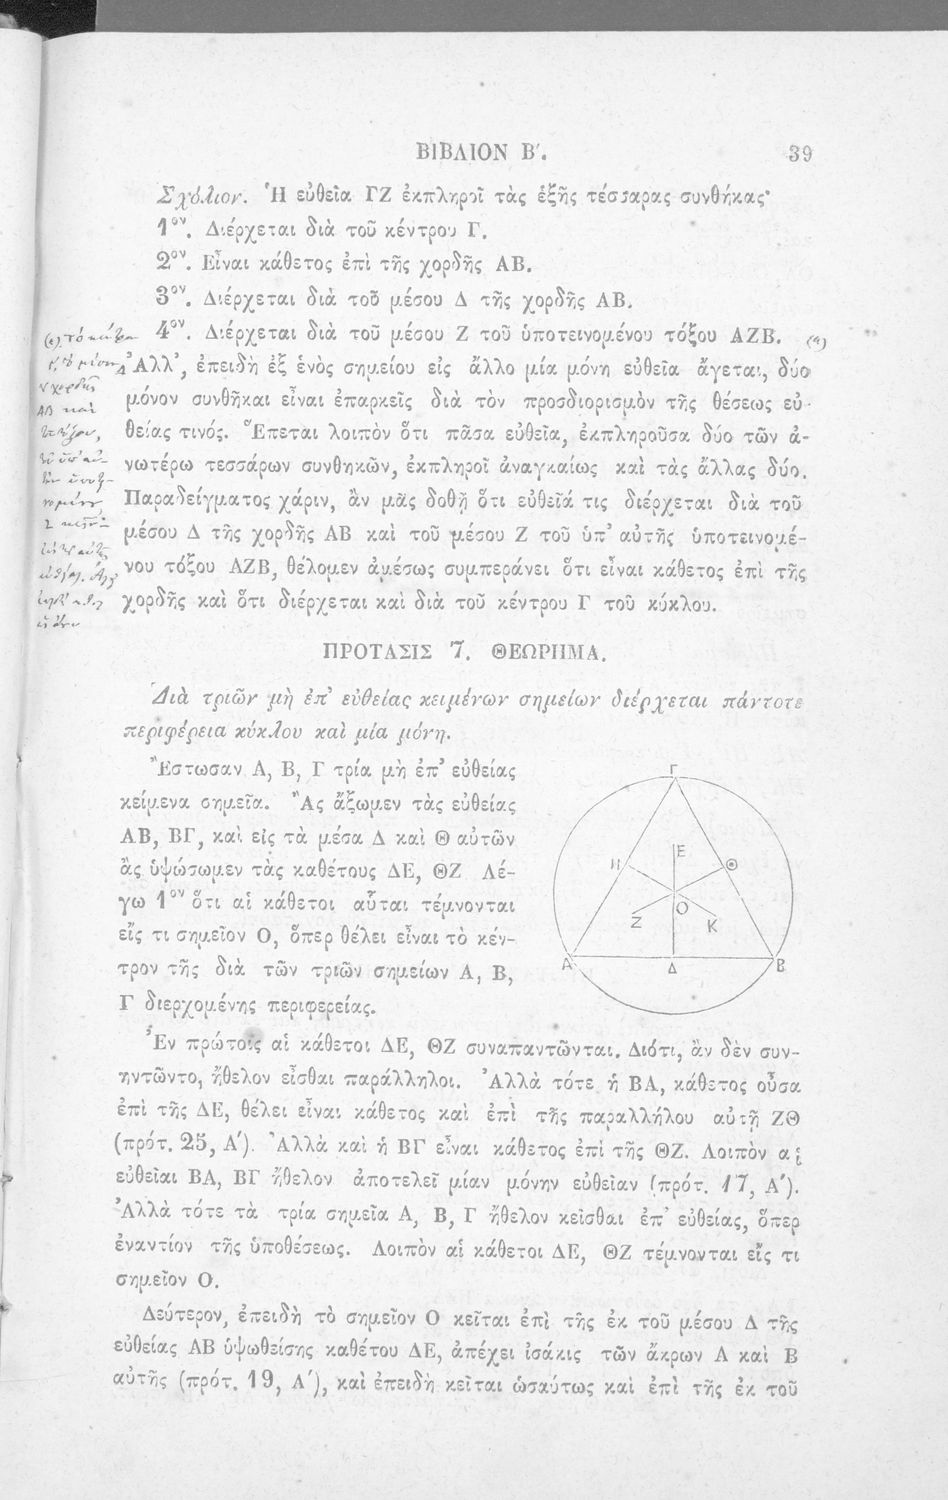 ΒΙΒΛΙΟΝ Β΄. 39
Σχόλιον. Ἡ εὐθεῖα ΓΖ ἐκπληροῖ τὰς ἑξῆς τέσσαρας συνθήκας·
1ον. Διέρχεται διὰ τοῦ κέντρου Γ.
2ον. Εἶναι κάθετος ἐπὶ τῆς χορδῆς ΑΒ.
3ον. Διέρχεται διὰ τοῦ μέσου Δ τῆς χορδῆς ΑΒ.
4ον. Διέρχεται διὰ τοῦ μέσου Ζ τοῦ ὑποτεινομένου τόξου ΑΖΒ.
Ἀλλ’, ἐπειδὴ ἐξ ἑνὸς σημείου εἰς ἄλλο μία μόνη εὐθεῖα ἄγεται, δύο
μόνον συνθῆκαι εἶναι ἐπαρκεῖς διὰ τὸν προσδιορισμὸν τῆς θέσεως εὐ-
θείας τινός. Ἕπεται λοιπὸν ὅτι πᾶσα εὐθεῖα, ἐκπληροῦσα δύο τῶν ἀ-
νωτέρω τεσσάρων συνθηκῶν, ἐκπληροῖ ἀναγκαίως καὶ τὰς ἄλλας δύο.
Παραδείγματος χάριν, ἂν μᾶς δοθῇ ὅτι εὐθεῖά τις διέρχεται διὰ τοῦ
μέσου Δ τῆς χορδῆς ΑΒ καὶ τοῦ μέσου Ζ τοῦ ὑπ’ αὐτῆς ὑποτεινομέ-
νου τόξου ΑΖΒ, θέλομεν ἀμέσως συμπεράνει ὅτι εἶναι κάθετος ἐπὶ τῆς
χορδῆς καὶ ὅτι διέρχεται καὶ διὰ τοῦ κέντρου Γ τοῦ κύκλου.
ΠΡΟΤΑΣΙΣ 7. ΘΕΩΡΗΜΑ.
Διὰ τριῶν μὴ ἐπ’ εὐθείας κειμένων σημείων διέρχεται πάντοτε
περιφέρεια κύκλου καὶ μία μόνη.
Ἔστωσαν Α, Β, Γ τρία μὴ ἐπ’ εὐθείας
κείμενα σημεῖα. Ἂς ἄξωμεν τὰς εὐθείας
ΑΒ, ΒΓ, καὶ εἰς τὰ μέσα Δ καὶ Θ αὐτῶν
ἂς ὑψώσωμεν τὰς καθέτους ΔΕ, ΘΖ Λέ-
γω 1ον ὅτι αἱ κάθετοι αὗται τέμνονται
εἴς τι σημεῖον Ο, ὅπερ θέλει εἶναι τὸ κέν-
τρον τῆς διὰ τῶν τριῶν σημείων Α, Β,
Γ διερχομένης περιφερείας.
Γ
Η Ε Θ
Ο
Ζ Κ
Α Δ Β
Ἐν πρώτοις αἱ κάθετοι ΔΕ, ΘΖ συναπαντῶνται. Διότι, ἂν δὲν συν-
ηντῶντο, ἤθελον εἶσθαι παράλληλοι. Ἀλλὰ τότε ἡ ΒΑ, κάθετος οὖσα
ἐπὶ τῆς ΔΕ, θέλει εἶναι κάθετος καὶ ἐπὶ τῆς παραλλήλου αὐτῇ ΖΘ
(πρότ. 25, Α΄). Ἀλλὰ καὶ ἡ ΒΓ εἶναι κάθετος ἐπὶ τῆς ΘΖ. Λοιπὸν αἱ
εὐθεῖαι ΒΑ, ΒΓ ἤθελον ἀποτελεῖ μίαν μόνην εὐθεῖαν (πρότ. 17, Α΄).
Ἀλλὰ τότε τὰ τρία σημεῖα Α, Β, Γ ἤθελον κεῖσθαι ἐπ’ εὐθείας, ὅπερ
ἐναντίον τῆς ὑποθέσεως. Λοιπὸν αἱ κάθετοι ΔΕ, ΘΖ τέμνονται εἴς τι
σημεῖον Ο.
Δεύτερον, ἐπειδὴ τὸ σημεῖον Ο κεῖται ἐπὶ τῆς ἐκ τοῦ μέσου Δ τῆς
εὐθείας ΑΒ ὑψωθείσης καθέτου ΔΕ, ἀπέχει ἰσάκις τῶν ἄκρων Α καὶ Β
αὐτῆς (πρότ. 19, Α΄), καὶ ἐπειδὴ κεῖται ὡσαύτως καὶ ἐπὶ τῆς ἐκ τοῦ